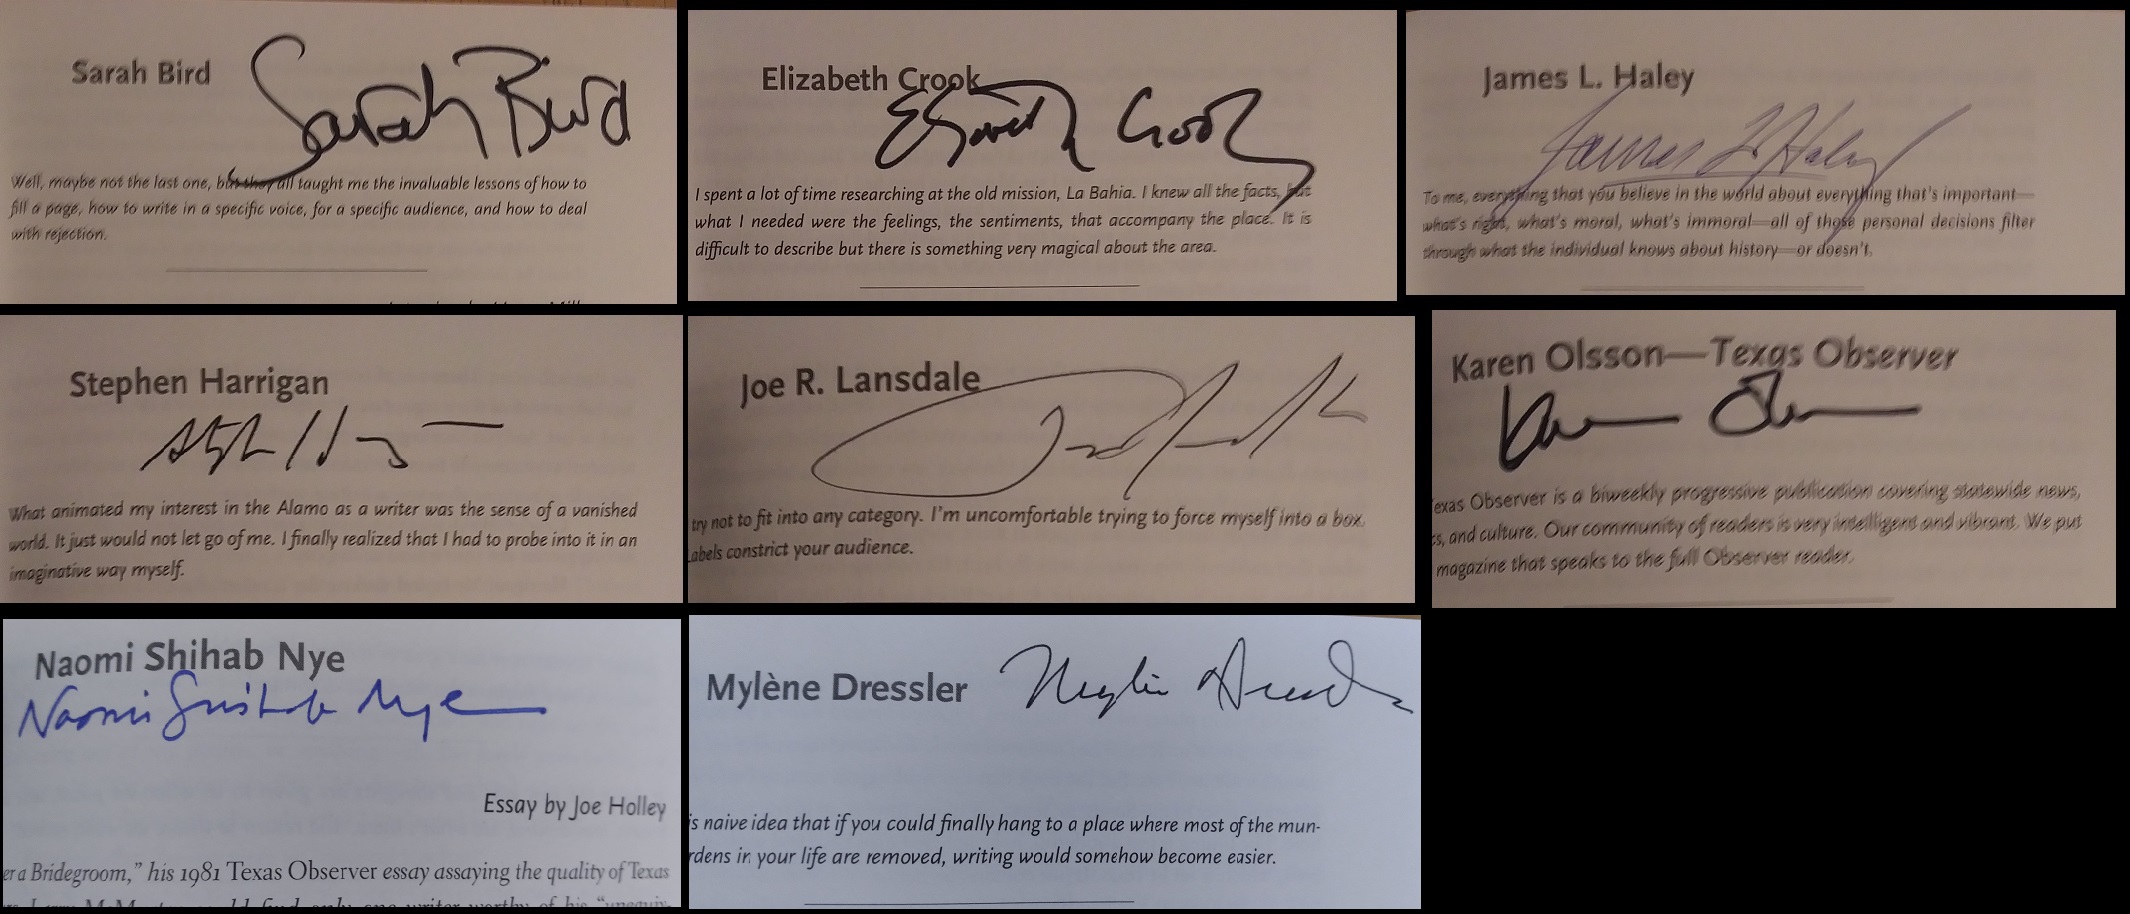 Sarah Bird
Sarah Bird
Well, maybe not the last one, but they all taught me the invaluable lessons of how to
fill a page, how to write in a specific voice, for a specific audience, and how to deal
with rejection.
Elizabeth Crook
Elizabeth Crook
I spent a lot of time researching at the old mission, La Bahia. I knew all the facts, but
what I needed were the feelings, the sentiments, that accompany the place. It is
difficult to describe but there is something very magical about the area.
James L. Haley
James L Haley
To me, everything that you believe in the world about everything that's important—
what's right, what's moral, what's immoral—all of those personal decisions filter
through what the individual knows about history—or doesn't.
Stephen Harrigan
What animated my interest in the Alamo as a writer was the sense of a vanished
world. It just would not let go of me. I finally realized that I had to probe into it in an
imaginative way myself.
Joe R. Lansdale
try not to fit into any category. I'm uncomfortable trying to force myself into a box.
Labels constrict your audience.
Karen Olsson—Texas Observer
exas Observer is a biweekly progressive publication covering statewide news,
cs, and culture. Our community of readers is very intelligent and vibrant. We put
magazine that speaks to the full Observer reader.
Naomi Shihab Nye
Naomi Shihab Nye
Essay by Joe Holley
er a Bridegroom," his 1981 Texas Observer essay assaying the quality of Texas
Mylène Dressler
is naive idea that if you could finally hang to a place where most of the mun-
rdens in your life are removed, writing would somehow become easier.